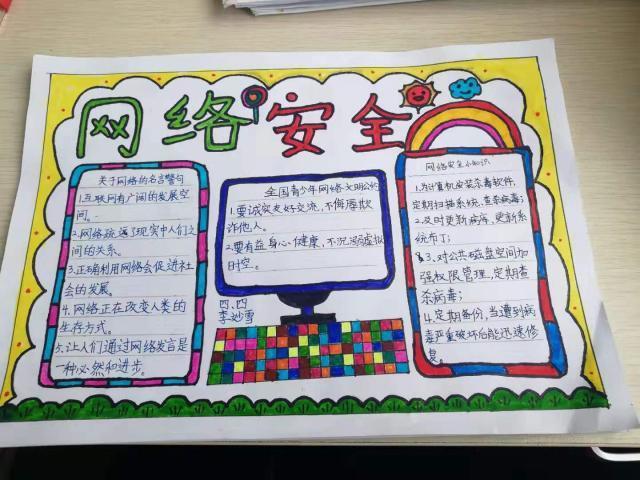 网络安全
关于网络的名言警句
1.互联网有广阔的发展空
间。
2.网络疏远了现实中人们之
间的关系。
3.正确利用网络会促进社
会的发展。
4.网络正在改变人类的
生存方式。
5.让人们通过网络发言是
一种必然和进步。
全国青少年网络文明公约
1.要诚实友好交流,不侮辱欺
诈他人。
2.要有益身心健康,不沉溺虚拟
时空。
四、四
李妙雪
网络安全小知识
1.为计算机安装杀毒软件,
定期扫描系统,查杀病毒;
2.及时更新病库,更新系
统布丁;
3、对公共磁盘空间加
强权限管理,定期查
杀病毒;
4.定期备份,当遭到病
毒严重破坏后能迅速修
复。